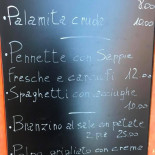 8.00
• Palamita cruda 10.00
• Pennette con Seppie
Fresche e carciofi 12.00
• Spaghetti con acciughe
10.00
• Branzino al sale con patate
2 pre 25.00
• Polpo grigliato con crema